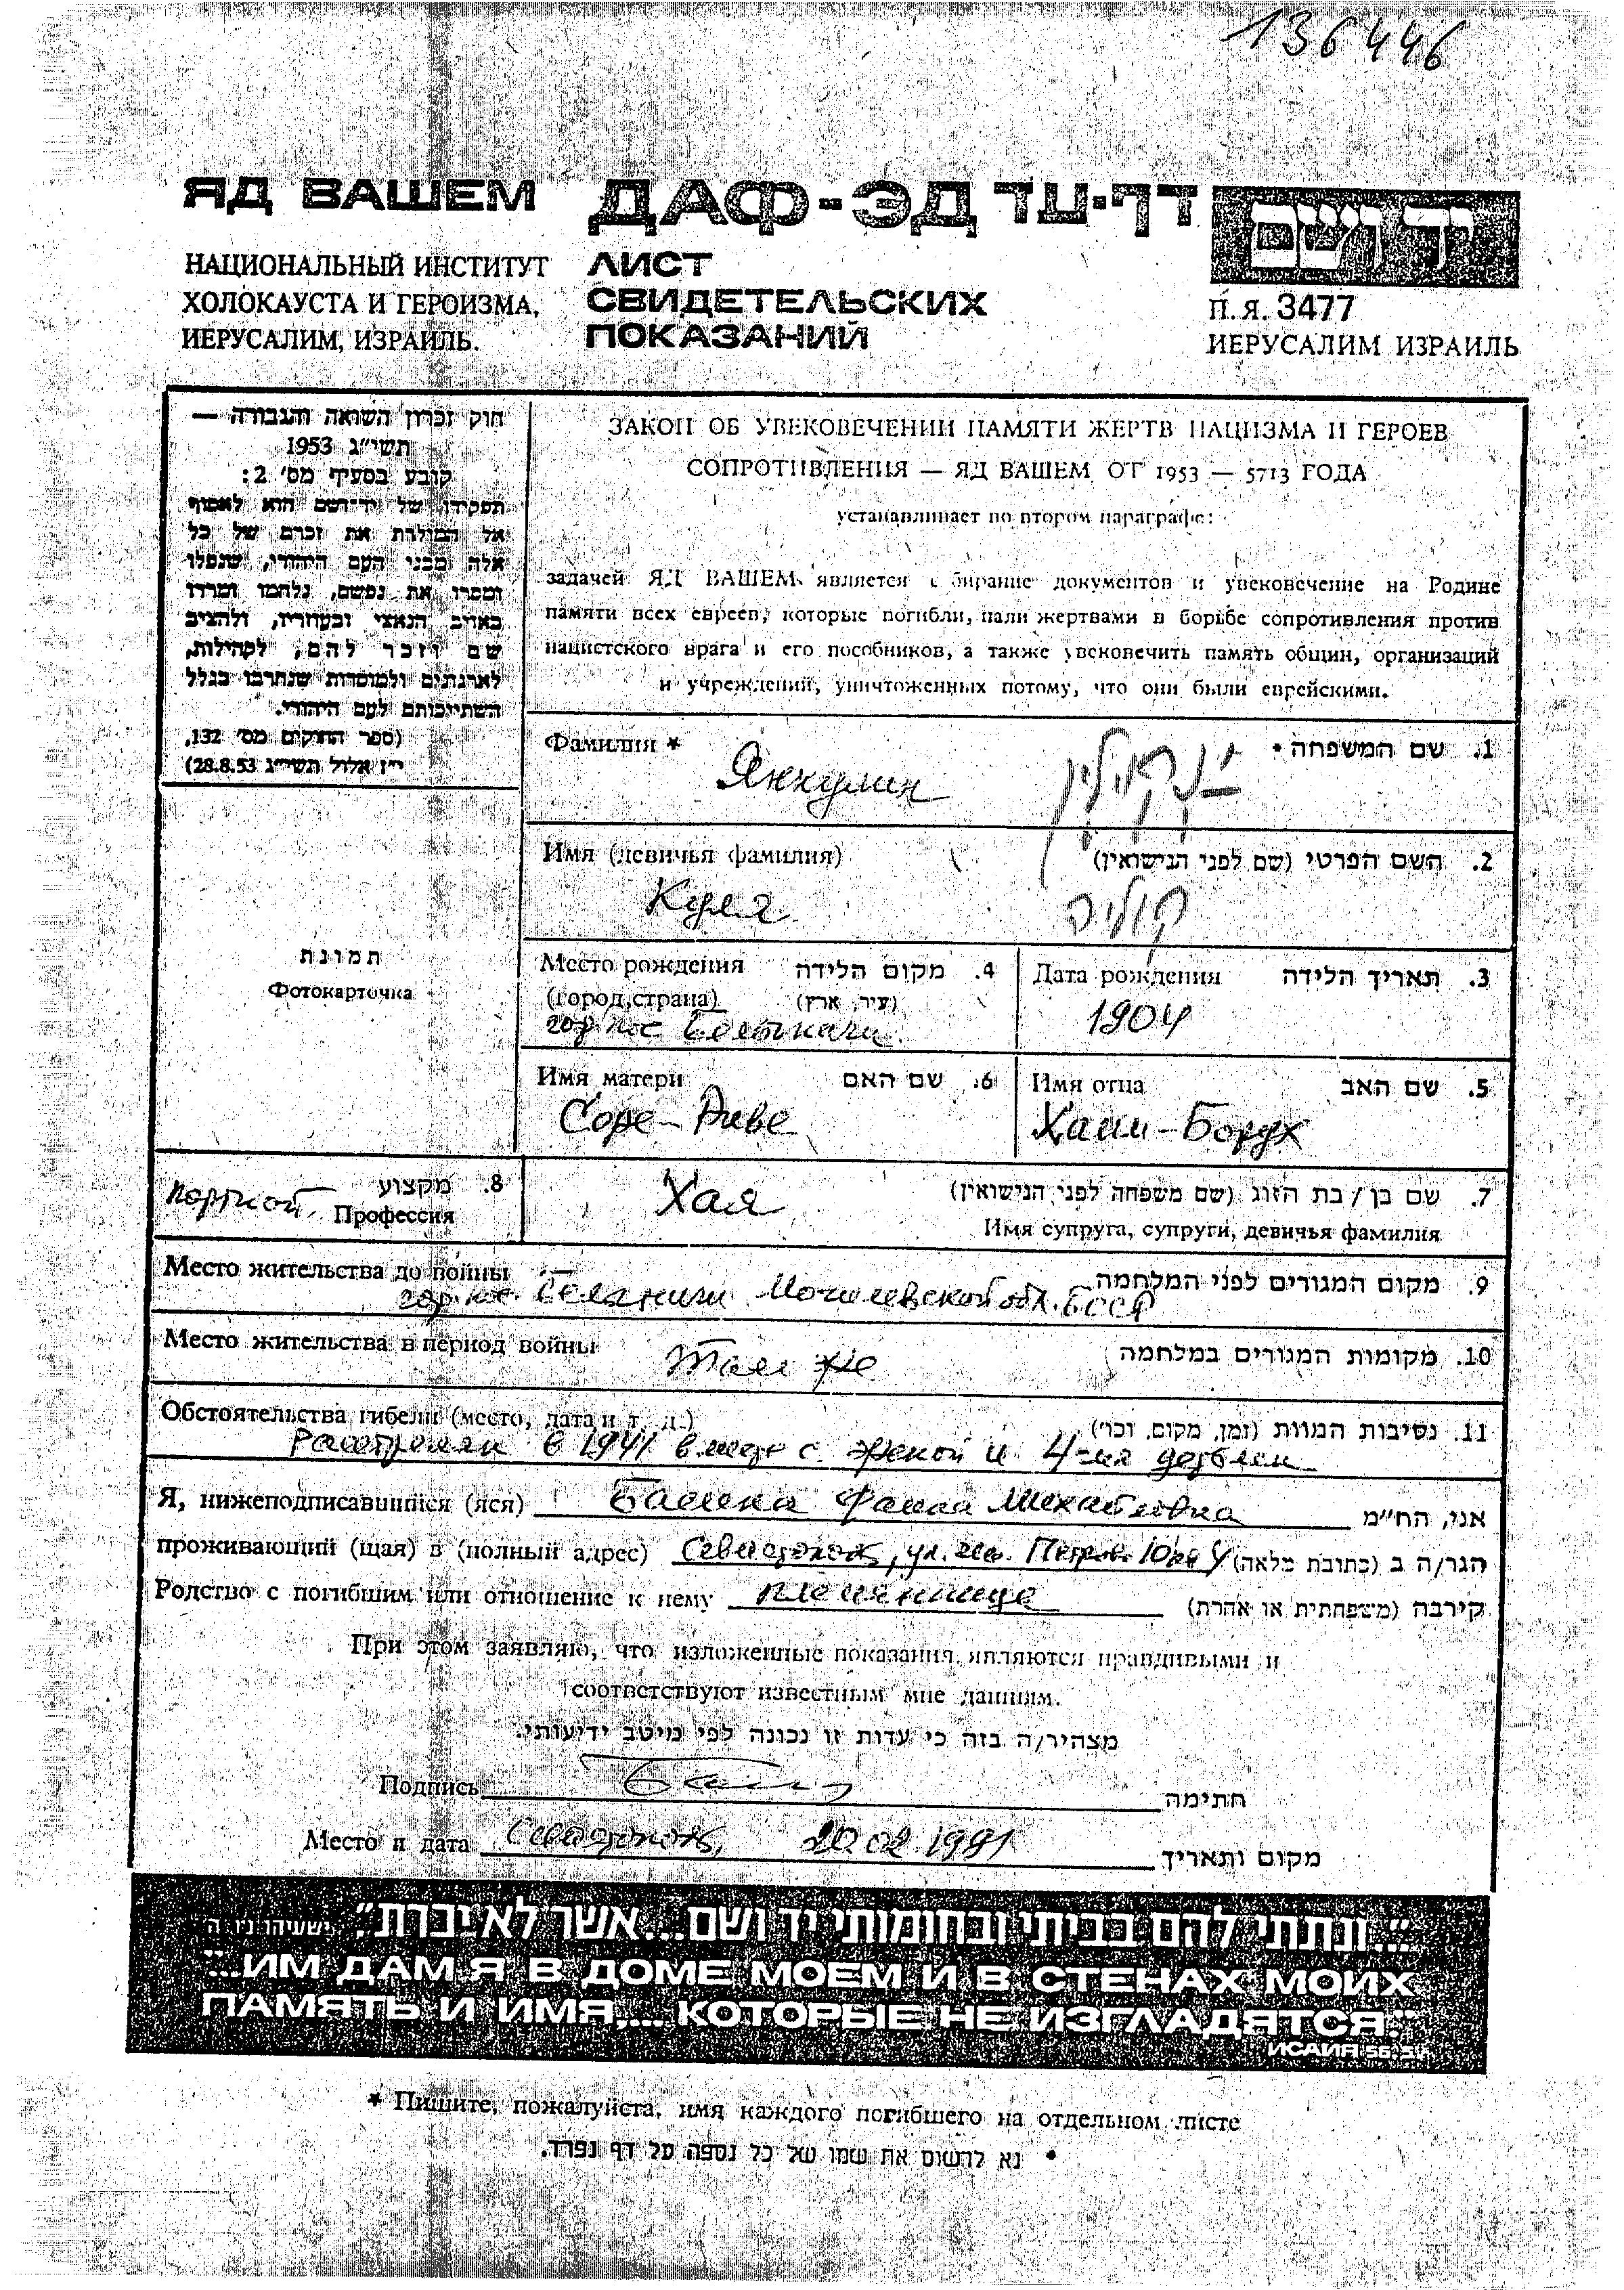 136446
ЯД ВАШЕМ ДАФ-ЭД דף-עד יד ושם
НАЦИОНАЛЬНЫЙ ИНСТИТУТ
ХОЛОКАУСТА И ГЕРОИЗМА,
ИЕРУСАЛИМ, ИЗРАИЛЬ.
ЛИСТ
СВИДЕТЕЛЬСКИХ
ПОКАЗАНИЙ
П.Я. 3477
ИЕРУСАЛИМ ИЗРАИЛЬ
חוק זכרון השואה והגבורה —
תשי״ג 1953
קובע בסעיף מס׳ 2:
תפקידו של יד־ושם הוא לאסוף
אל המולדת את זכרם של כל
אלה מבני העם היהודי, שנפלו
ומסרו את נפשם, נלחמו ומרדו
באויב הנאצי ובעוזריו, ולהציב
שם וזכר להם, לקהילות,
לארגונים ולמוסדות שנחרבו בגלל
השתייכותם לעם היהודי.
(ספר החוקים מס׳ 132,
י״ז אלול תשי״ג 28.8.53)
ЗАКОН ОБ УВЕКОВЕЧЕНИИ ПАМЯТИ ЖЕРТВ НАЦИЗМА И ГЕРОЕВ
СОПРОТИВЛЕНИЯ — ЯД ВАШЕМ ОТ 1953 — 5713 ГОДА
устанавливает во втором параграфе:
задачей ЯД ВАШЕМ является собирание документов и увековечение на Родине
памяти всех евреев, которые погибли, пали жертвами в борьбе сопротивления против
нацистского врага и его пособников, а также увековечить память общин, организаций
и учреждений, уничтоженных потому, что они были еврейскими.
Фамилия * 1. שם המשפחה •
Янкулин ינקולין
Имя (девичья фамилия) 2. השם הפרטי (שם לפני הנישואין)
Куля קוליה
Место рождения 4. מקום הלידה
(город, страна) (עיר, ארץ)
гор. пос.
Дата рождения 3. תאריך הלידה
1904
Имя матери 6. שם האם
Соре-Риве
Имя отца 5. שם האב
Хаим-Борух
תמונת
Фотокарточка
8. מקצוע
портной Профессия
Хая 7. שם בן / בת הזוג (שם משפחה לפני הנישואין)
Имя супруга, супруги, девичья фамилия
Место жительства до войны 9. מקום המגורים לפני המלחמה
гор. пос. Могилевской обл. БССР
Место жительства в период войны 10. מקומות המגורים במלחמה
там же
Обстоятельства гибели (место, дата и т. д.) 11. נסיבות המוות (זמן, מקום, וכו׳)
Расстрелян в 1941 вместе с женой и 4-мя детьми
Я, нижеподписавшийся (яся) Фаина Михайловна אני, הח״מ
проживающий (щая) в (полный адрес) Севастополь, ул. הגר/ה ב (כתובת מלאה)
Родство с погибшим или отношение к нему племянница קירבה (משפחתית או אחרת)
При этом заявляю, что изложенные показания являются правдивыми и
соответствуют известным мне данным.
מצהיר/ה בזה כי עדות זו נכונה לפי מיטב ידיעותי.
Подпись חתימה
Место и дата Севастополь, 20.02.1991 מקום ותאריך
"...ונתתי להם בביתי ובחומותי יד ושם...אשר לא יכרת". ישעיהו נ״ו ה
"...ИМ ДАМ Я В ДОМЕ МОЕМ И В СТЕНАХ МОИХ
ПАМЯТЬ И ИМЯ.... КОТОРЫЕ НЕ ИЗГЛАДЯТСЯ."
ИСАИЯ 56:5
* Пишите, пожалуйста, имя каждого погибшего на отдельном листе
• נא לרשום את שמו של כל נספה על דף נפרד.